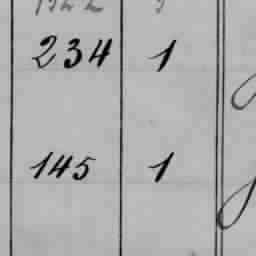 234 1
145 1